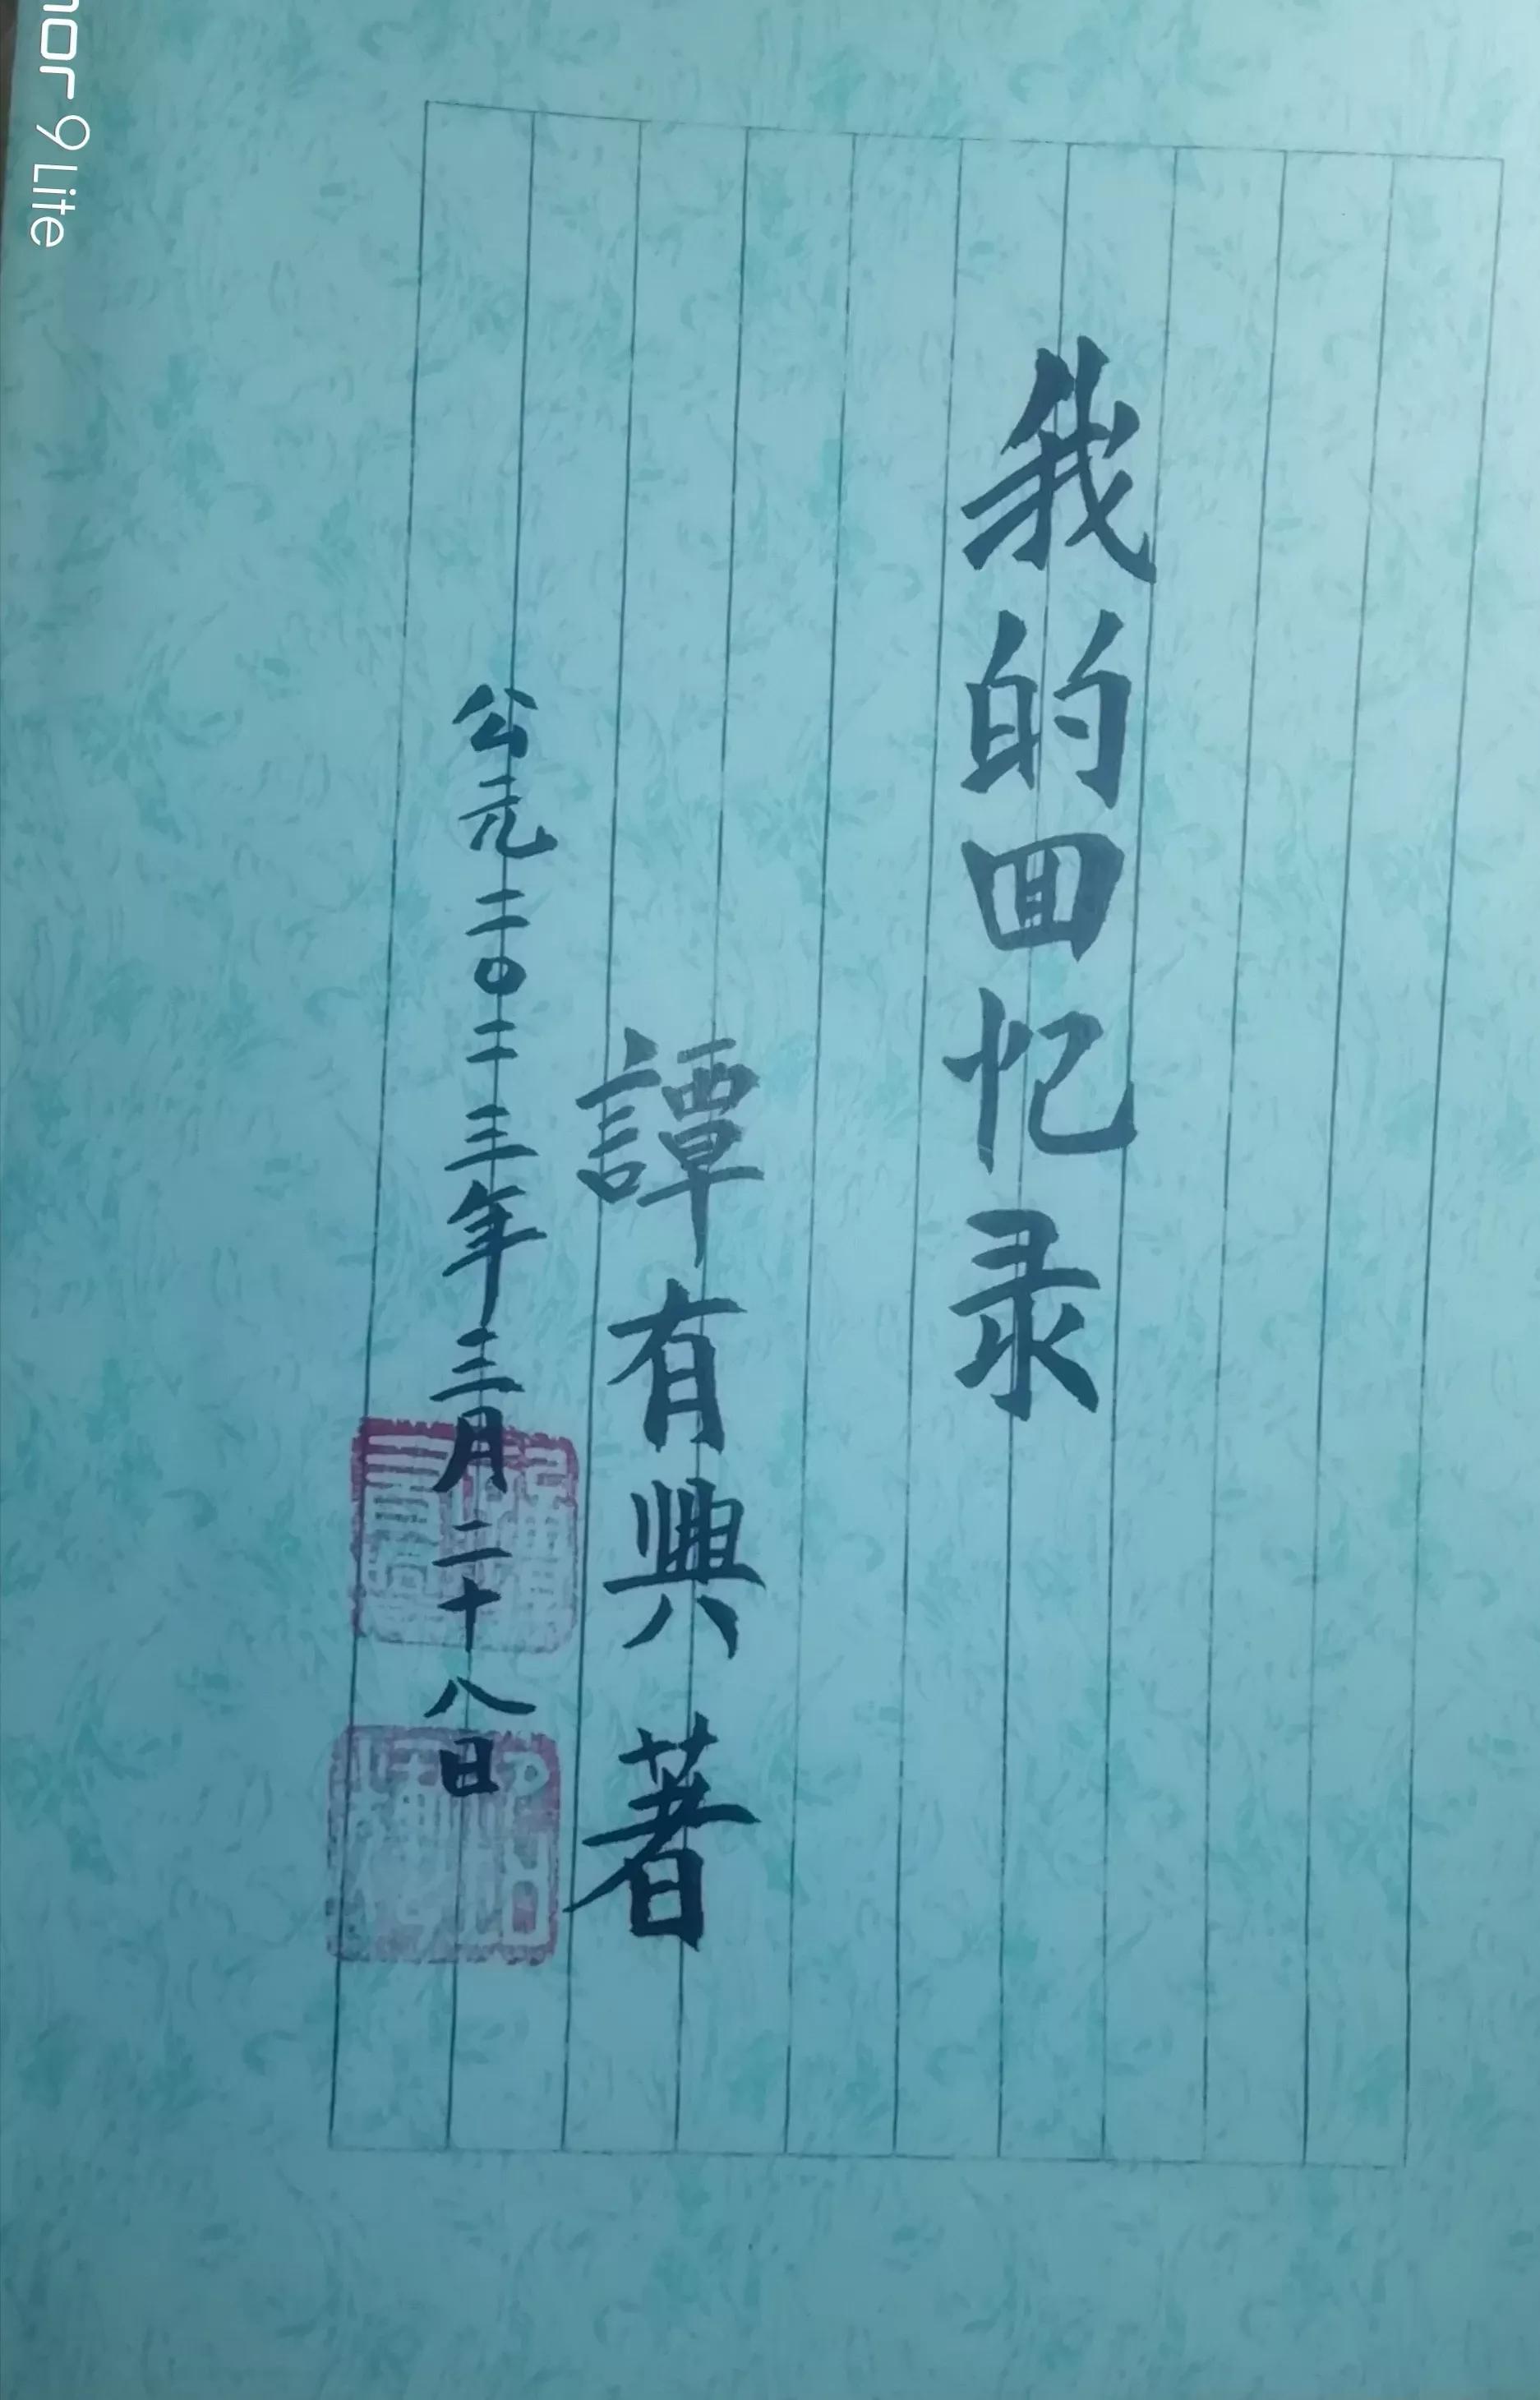 我的回忆录
譚有興 著
公元二〇二三年三月二十八日
nor 9 Lite